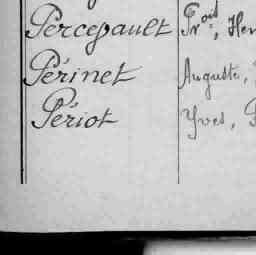 Percepault Fr.ois, Hen
Périnet Auguste,
Périot Yves, P